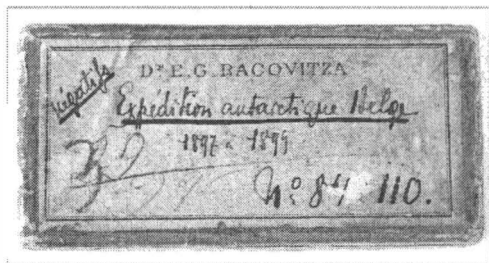 Négatifs
Dr E. G. RACOVITZA
Expédition antarctique Belge
1897 à 1899
No 84 110.